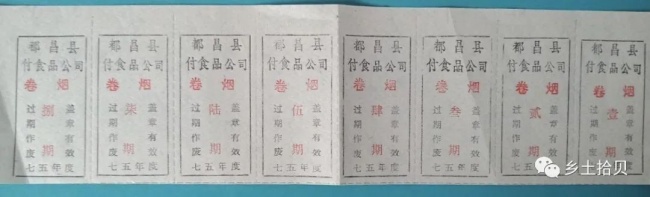 都昌县
付食品公司
卷烟
盖章有效
捌期
过期作废
七五年度
都昌县
付食品公司
卷烟
盖章有效
柒期
过期作废
七五年度
都昌县
付食品公司
卷烟
盖章有效
陆期
过期作废
七五年度
都昌县
付食品公司
卷烟
盖章有效
伍期
过期作废
七五年度
都昌县
付食品公司
卷烟
盖章有效
肆期
过期作废
七五年度
都昌县
付食品公司
卷烟
盖章有效
叁期
过期作废
七五年度
都昌县
付食品公司
卷烟
盖章有效
贰期
过期作废
七五年度
都昌县
付食品公司
卷烟
盖章有效
壹期
过期作废
七五年度
乡土拾贝